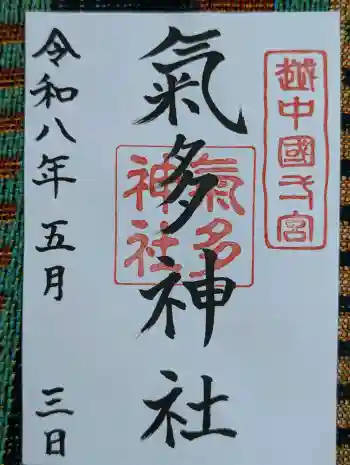 越中國一宮
氣多神社
氣多
神社
令和八年五月
三日